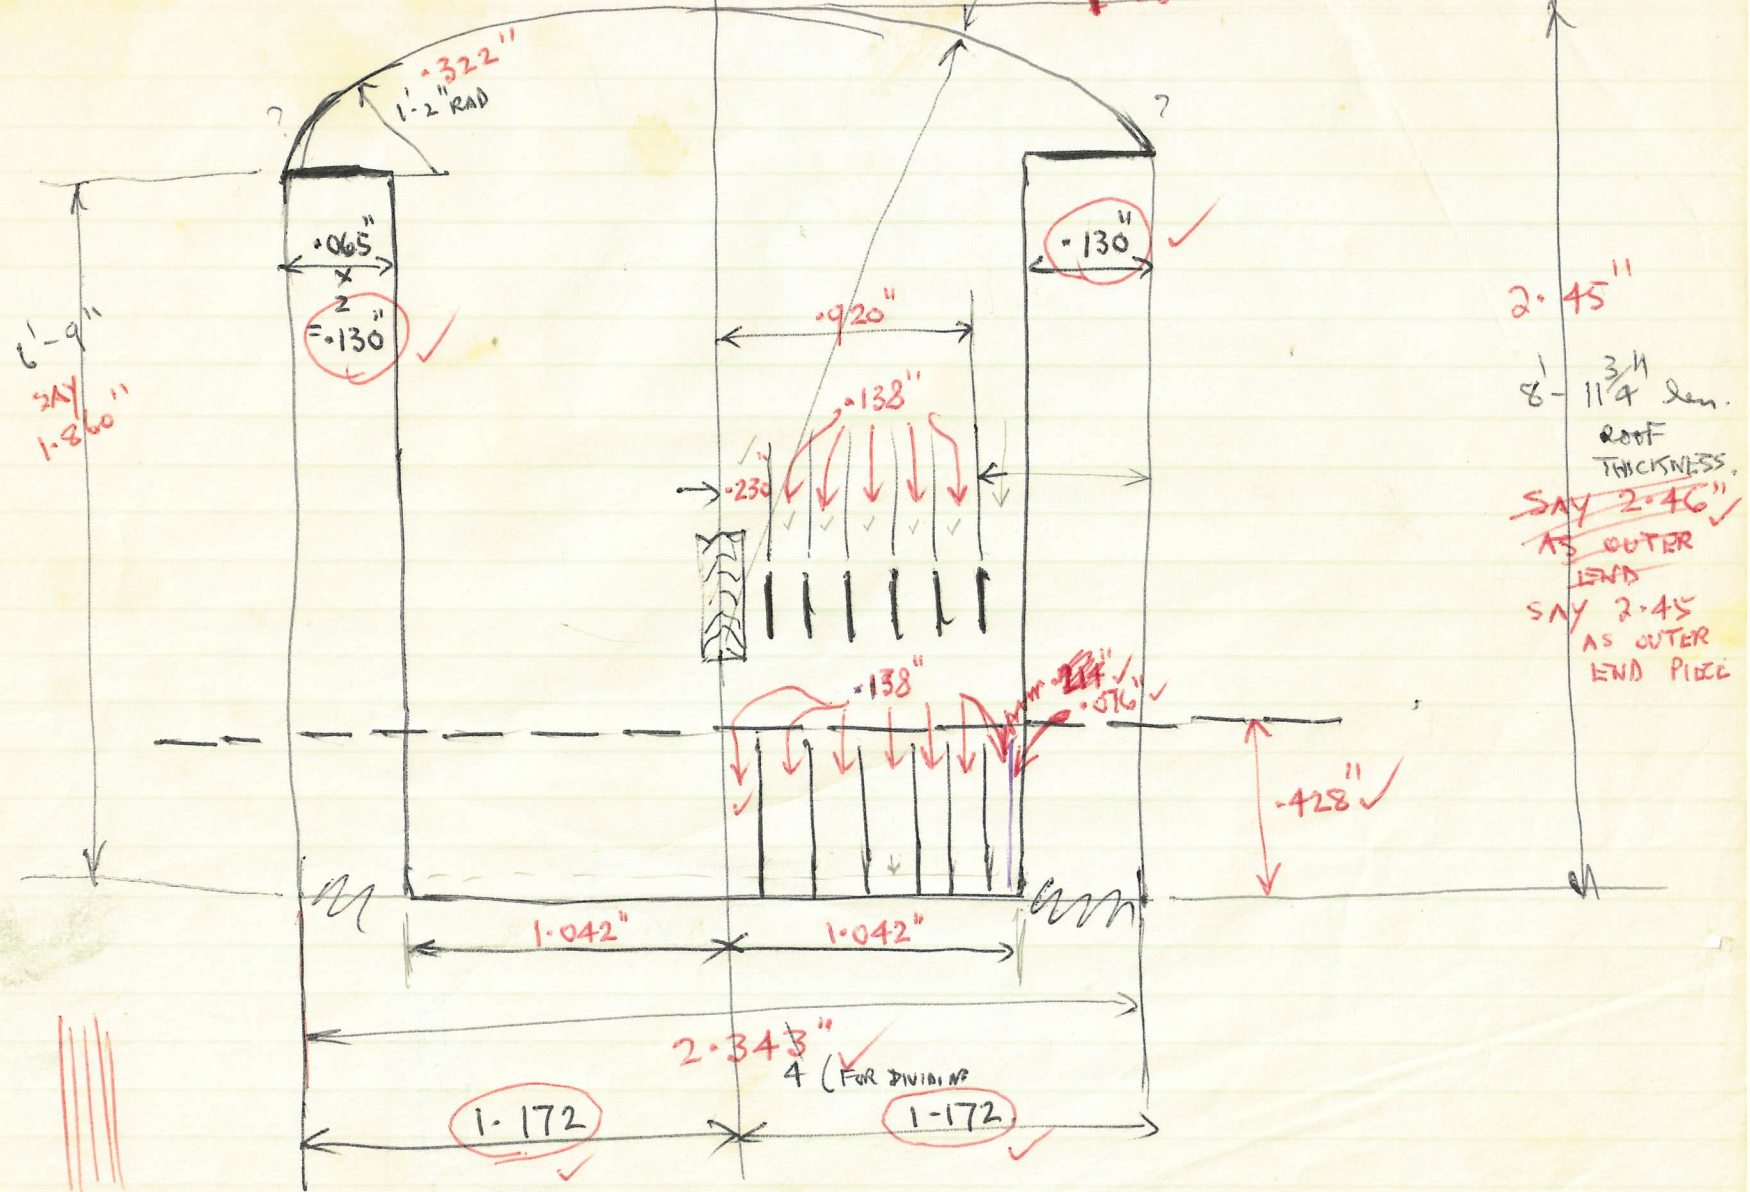 .322"
1'-2" RAD
?
?
.065"
x
2
=.130"
.130"
6'-9"
SAY
1.860"
.920"
.138"
.230"
2.45"
8'-11 3/4" len.
ROOF
THICKNESS.
SAY 2.46"
AS OUTER
END
SAY 2.45
AS OUTER
END PIECE
.138"
.214"
.076"
.428"
1.042"
1.042"
2.343"
4 (FOR DIVIDING
1.172
1.172